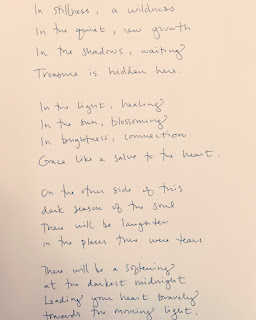 In stillness, a wildness
In the quiet, new growth
In the shadows, waiting
Treasure is hidden here.
In the light, healing
In the sun, blossoming
In brightness, connection
Grace like a salve to the heart.
On the other side of this
dark season of the soul
There will be laughter
in the places there were tears
There will be a softening
at the darkest midnight
Leading your heart bravely
towards the morning light.